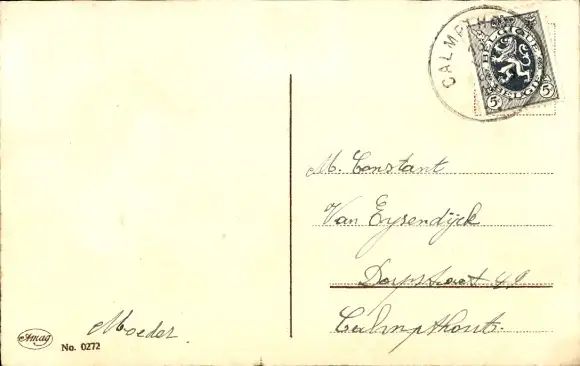 CALMPTHO
BELGIQUE
5 5
BELGIË
M. Constant
Van Eysendijck
Dorpstraat
Calmpthout.
Moeder.
Amag
No. 0272